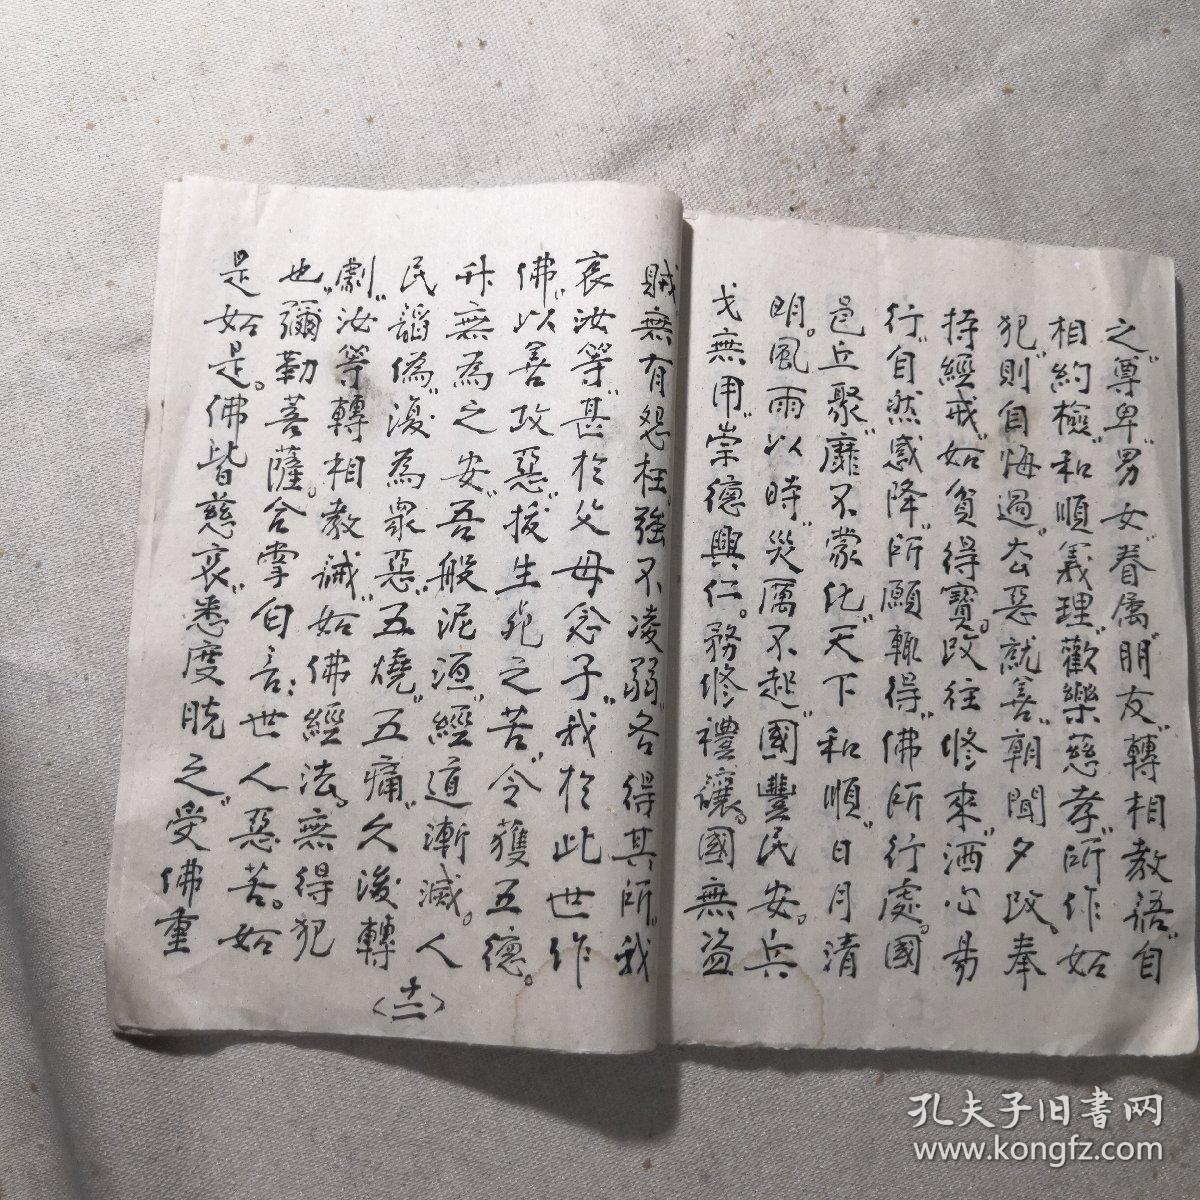 之、尊卑、男女、眷属、朋友、轉相教語、自
相約檢、和順義理、歡樂慈孝、所作如
犯、則自悔過。去惡就善、朝聞夕改。奉
持經戒、如貧得寶。改往修來、洒心易
行、自然感降、所願輒得、佛所行處。國
邑丘聚、靡不蒙化、天下和順、日月清
明。風雨以時、災厲不起、國豐民安。兵
戈無用、崇德興仁。務修禮讓。國無盜
賊。無有怨枉、強不凌弱、各得其所。我
哀汝等、甚於父母念子、我於此世作
佛、以善攻惡、拔生死之苦、令獲五德。
升無為之安、吾般泥洹、經道漸滅。人
民諂偽、復為眾惡、五燒、五痛、久後轉
劇、汝等轉相教誡、如佛經法。無得犯
也、彌勒菩薩。合掌白言：世人惡苦。如
是如是。佛皆慈哀、悉度脫之、受佛重
（十二）
孔夫子旧書网
www.kongfz.com